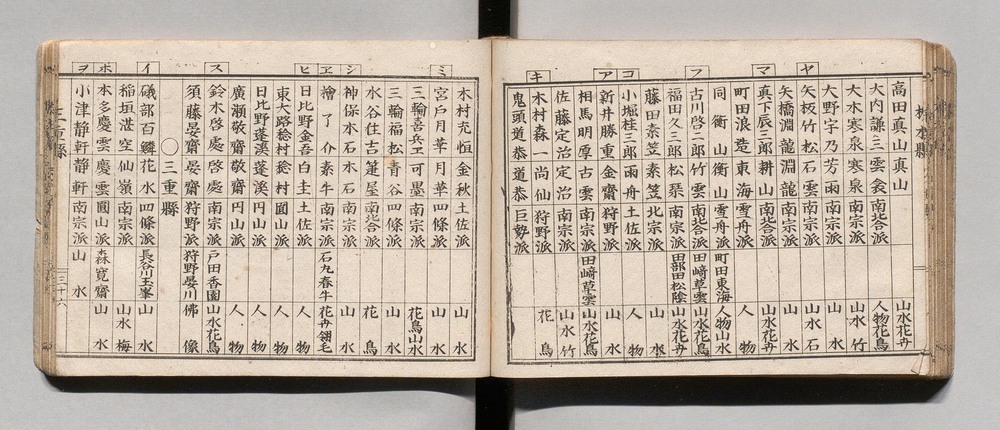 栃木縣
高田真山 真山 山水花卉
大内謙三 雲 南北合派 人物花鳥
大木寒泉 寒泉 南宗派 山水竹
大野宇乃 芳雨 南宗派 山水
ヤ
矢板竹松 石雲 南宗派 山水石
矢橋淵龍 淵龍 南宗派 山水
マ
真下辰三郎 耕山 南北合派 山水花卉
町田浪造 東海 雪舟派 人物
同衡山 衡山 雪舟派 町田東海 人物山水
フ
古川啓二郎 竹雲 南北合派 田崎草雲 山水花鳥
福田久三郎 松琹 南宗派 田部田松陰 山水花卉
藤田泰笠 泰笠 北宗派 山水
コ
小堀桂三郎 雨舟 土佐派 人物
ア
新井勝重 金齋 狩野派 山水
相馬明厚 古雲 南宗派 田崎草雲 山水花鳥
佐藤定治 定治 南宗派 山水竹
キ
木村森一 尚仙 狩野派 花鳥
鬼頭道恭 道恭 巨勢派
ミ
木村克恒 金秋 土佐派 山水
宮戸月華 月華 四條派 山水
三輪喜兵エ 可墨 南宗派 花鳥山水
三輪福松 青谷 四條派 山水
水谷住吉 篷屋 南北合派 花鳥
シ
神保木石 木石 南宗派 山水
ヱ
檜了介 素牛 南宗派 石九春牛 花卉翎毛
ヒ
日比野金吾 白圭 土佐派 人物
東大路稔村 稔村 圓山派 人物
日比野蓬溪 蓬溪 円山派 人物
廣瀬敬齋 敬齋 円山派 人物
ス
鈴木啓處 啓處 南宗派 戸田香園 山水花鳥
須藤晏齋 晏齋 狩野派 狩野晏川 佛像
〇三重縣
イ
磯部百鱗 花水 四條派 長谷川玉峯 山水
稲垣湛空 仙嶺 南宗派 山水梅
ホ
本多慶雲 慶雲 圓山派 森寛齋 山水
ヲ
小津静軒 静軒 南宗派 山水
三重縣
三十六